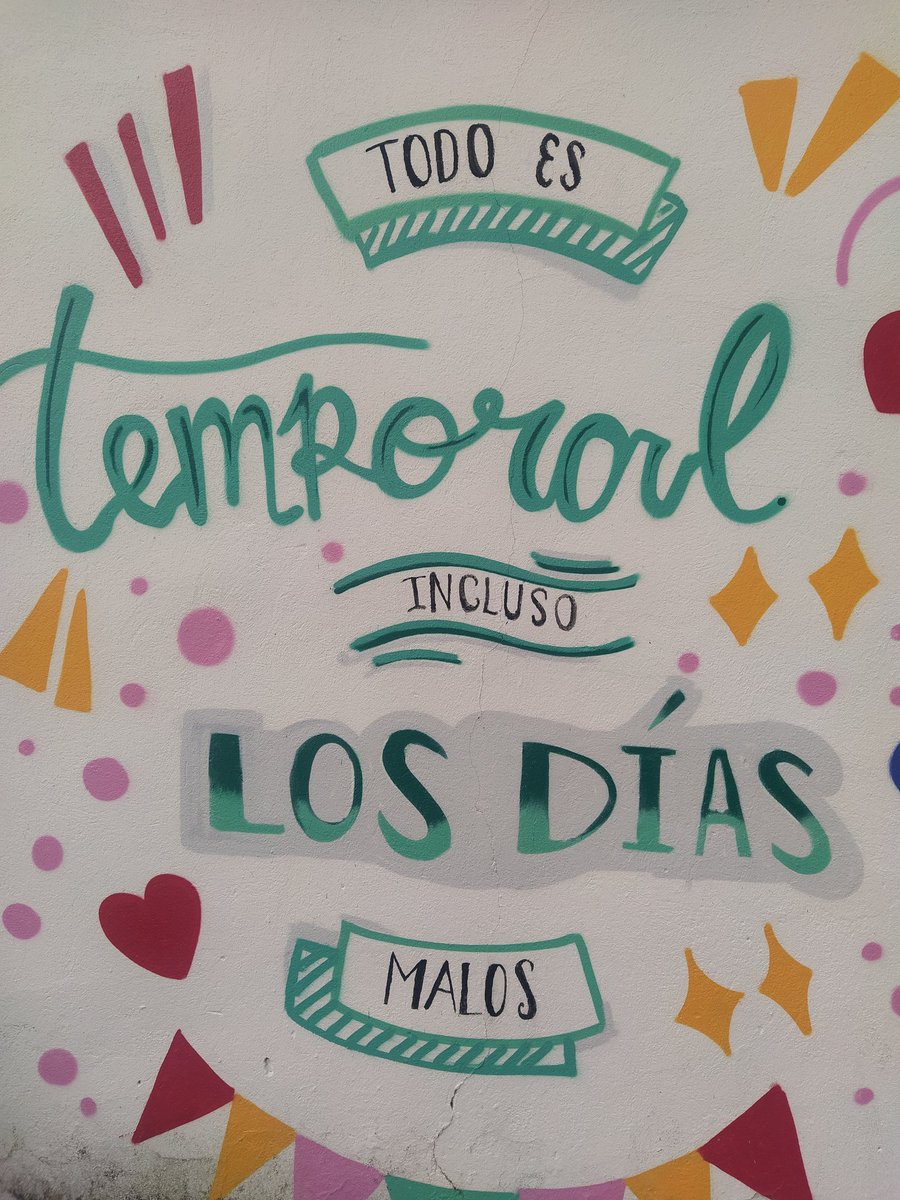 TODO ES
temporal.
INCLUSO
LOS DÍAS
MALOS